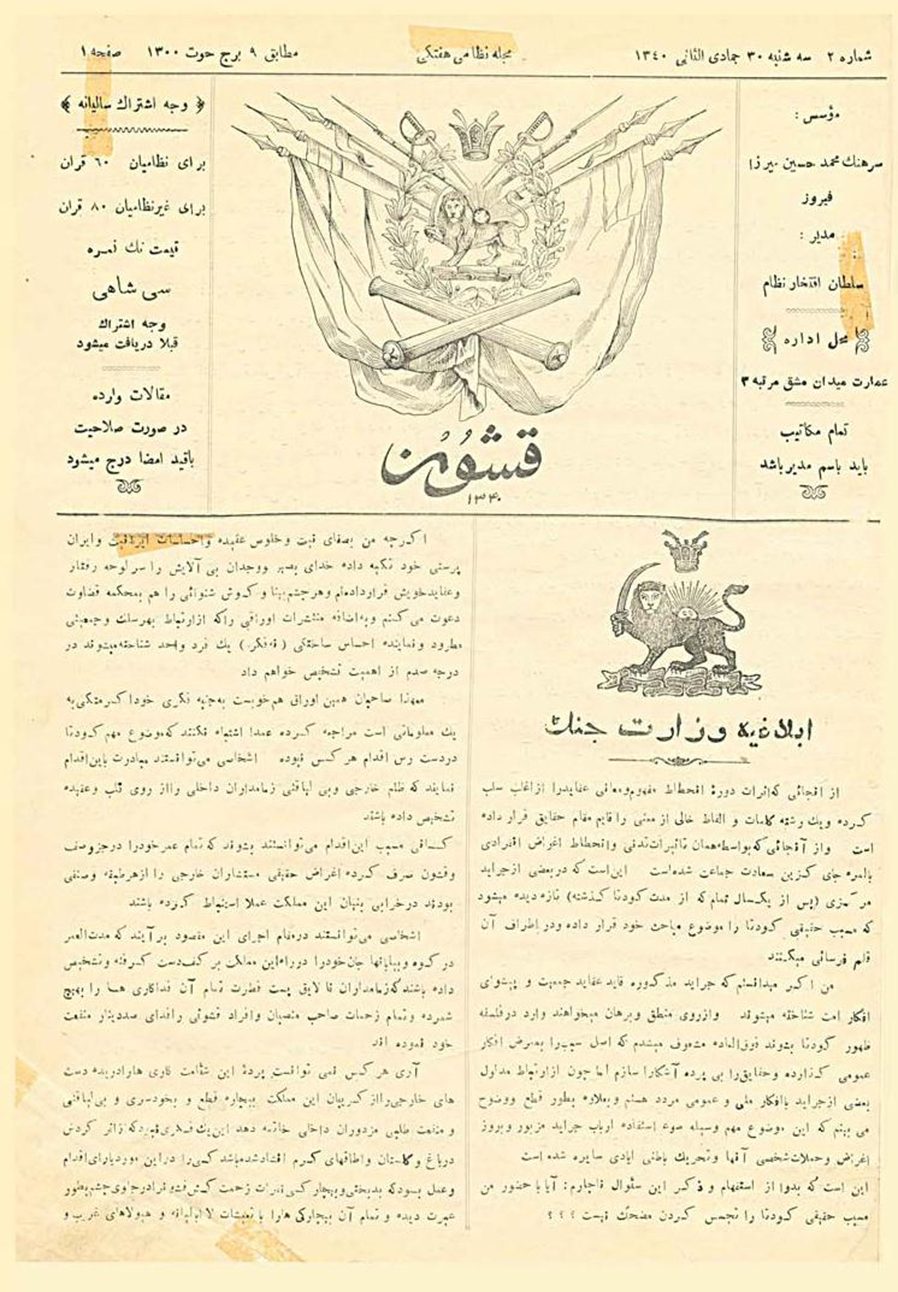 شماره ۲ سه شنبه ۳۰ جمادی الثانی ۱۳٤۰
مجله نظامی هفتگی
مطابق ۹ برج حوت ۱۳۰۰ صفحه ۱
مؤسس :
سرهنگ محمد حسین میرزا
فیروز
مدیر :
سلطان افتخار نظام
محل اداره
عمارت میدان مشق مرتبه ۳
تمام مکاتیب
باید باسم مدیر باشد
قشون
۱۳۴۰
وجه اشتراک سالیانه
برای نظامیان ٦۰ قران
برای غیرنظامیان ۸۰ قران
قیمت تک نمره
سی شاهی
وجه اشتراک
قبلا دریافت میشود
مقالات وارده
در صورت صلاحیت
باقید امضا درج میشود
ابلاغیه وزارت جنگ
از آنجائی که اثرات دورهٔ انحطاط مفهوم ومعانی عقایدرا از اغلب سلب
کرده ویک رشته کلمات و الفاظ خالی از معنی را قایم مقام حقایق قرار داده
است واز آنجائی که بواسطه همان تاثیرات تدنی وانحطاط اغراض انفرادی
بالمره جای گزین سعادت جماعت شده است این است که در بعضی از جراید
مرکزی (پس از یکسال تمام که از مدت کودتا گذشته) تازه دیده میشود
که مسبب حقیقی کودتا را موضوع مباحث خود قرار داده ودر اطراف آن
قلم فرسائی میکنند
من اگر میدانستم که جراید مذکوره قاید عقاید جمعیت و پیشوای
افکار امت شناخته میشوند وازروی منطق وبرهان میخواهند وارد در فلسفه
ظهور کودتا بشوند فوق العاده مشعوف میشدم که اصل سبب را بمعرض افکار
عمومی گذارده وحقایق را بی پرده آشکارا سازم اما چون از ارتباط مدلول
بعضی از جراید باافکار ملی و عمومی مردد هستم وبعلاوه بطور قطع ووضوح
می بینم که این موضوع مهم وسیله سوء استفاده ارباب جراید مزبور وبروز
اغراض وحملات شخصی آنها وتحریک باطنی ایادی سایره شده است
این است که بدوا از استفهام و ذکر این سئوال ناچارم: آیا با حضور من
مسبب حقیقی کودتا را تجسس کردن مضحک نیست ؟ ؟ ؟
اگرچه من بصفای نیت وخلوص عقیده واحساسات وایران
پرستی خود تکیه داده خدای بصیر ووجدان بی آلایش را سرلوحه رفتار
وعقاید خویش قرارداده ام وهر چشم بینا و گوش شنوائی را هم بمحکمه قضاوت
دعوت می کنم وبه اضافه منتشرات اوراقی راکه از ارتباط بهرسلک وجمعیتی
مطرود ونماینده احساس ساختگی یک فرد واحد شناخته میشوند در
درجه صدم از اهمیت تشخیص خواهم داد
معهذا صاحبان همین اوراق هم خوبست به جنبه فکری خود اگر متکی به
یک معلوماتی است مراجعه کرده عمدا اشتباه نکنند که موضوع مهم کودتا
دردست رس اقدام هر کس نبوده اشخاصی می توانستند مبادرت باین اقدام
نمایند که ظلم خارجی وبی لیاقتی زمامداران داخلی رااز روی قلب وعقیده
تشخیص داده باشند
کسانی مسبب این اقدام می توانستند بشوند که تمام عمر خودرا در جزو صف
وقشون صرف کرده اغراض حقیقی مستشاران خارجی را از هر طبقه وصنفی
بودند در خرابی بنیان این مملکت عملا استنباط کرده باشند
اشخاصی می توانستند در مقام اجرای این مقصود برآیند که مدت العمر
در کوه وبیابانها جان خودرا در راه این مملکت بر کف دست گرفته وتشخیص
داده باشند که زمامداران نا لایق پست فطرت تمام آن فداکاری هـا را بهیچ
شمرده وتمام زحمات صاحب منصبان وافراد قشونی رافدای صددینار منفعت
خود نموده اند
آری هر کس نمی توانست پردهٔ این شئامت کاری هارادریده دست
های خارجی رااز گریبان این مملکت بیچاره قطع و بخودسری و بی لیاقتی
و منفعت طلبی مزدوران داخلی خاتمه دهد این یک فکری نبود که در اثر گردش
درباغ وگلستان واطاقهای گرم اقتاد شده باشد کسی را در این مورد یارای اقدام
وعمل بود که بدبختی وبیچارگی
عبرت دیده و تمام آن بیچارگی هارا با تعیشات لا ابالیانه و هیولاهای غریب و